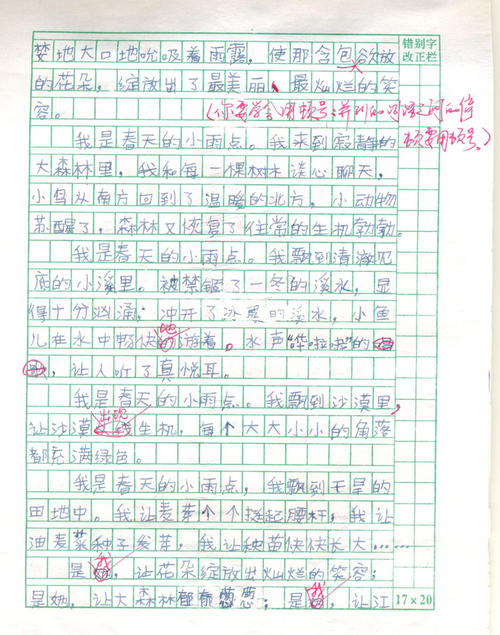 婪地大口地吮吸着雨露，使那含包欲放
的花朵，绽放出了最美丽、最灿烂的笑
容。
错别字
改正栏
(你要学会用顿号：并列的词语之间的停
顿要用顿号。)
我是春天的小雨点。我来到寂静的
大森林里，我和每一棵树木谈心聊天，
小鸟从南方回到了温暖的北方，小动物
苏醒了，森林又恢复了往常的生机勃勃。
我是春天的小雨点。我飘到清澈见
底的小溪里。被禁锢了一冬的溪水，显
得十分汹涌；冲开了冰冻的溪水，小鱼
儿在水中畅快地游着。水声“哗啦啦”的
，让人听了真悦耳。
我是春天的小雨点。我飘到沙漠里，
让沙漠出现一线生机，每个大大小小的角落
都充满绿色。
我是春天的小雨点，我飘到干旱的
田地中。我让麦芽个个挺起腰杆，我让
油麦菜种子发芽，我让秧苗快快长大……
是我，让花朵绽放出灿烂的笑容；
是她，让大森林郁郁葱葱；是我，让江
17×20